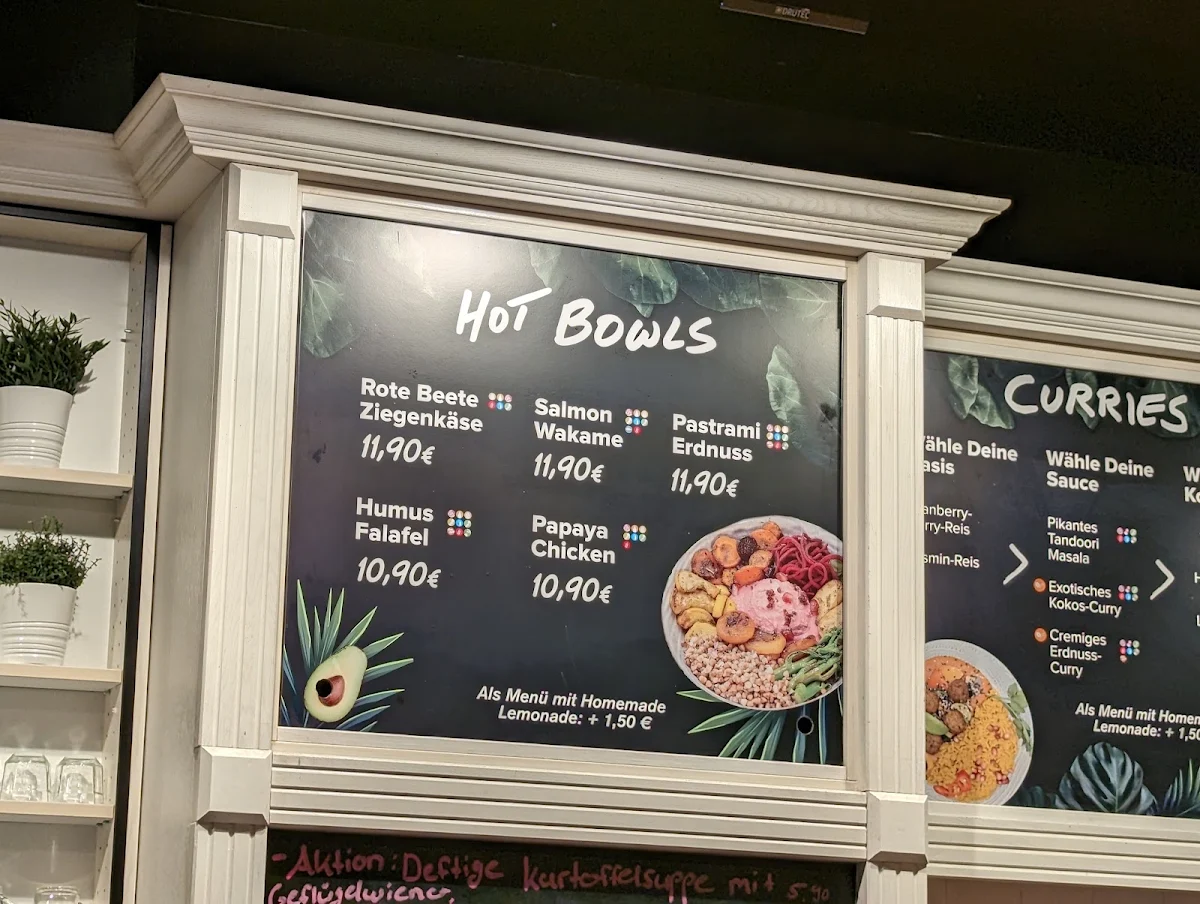 DRUTEC
HOT BOWLS
Rote Beete
Ziegenkäse
11,90€
Salmon
Wakame
11,90€
Pastrami
Erdnuss
11,90€
Humus
Falafel
10,90€
Papaya
Chicken
10,90€
Als Menü mit Homemade
Lemonade: + 1,50 €
CURRIES
ähle Deine
asis
anberry-
rry-Reis
smin-Reis
Wähle Deine
Sauce
Pikantes
Tandoori
Masala
Exotisches
Kokos-Curry
Cremiges
Erdnuss-
Curry
Als Menü mit Homem
Lemonade: + 1,50
- Aktion: Deftige Kartoffelsuppe mit 5,90
Geflügelwiener,